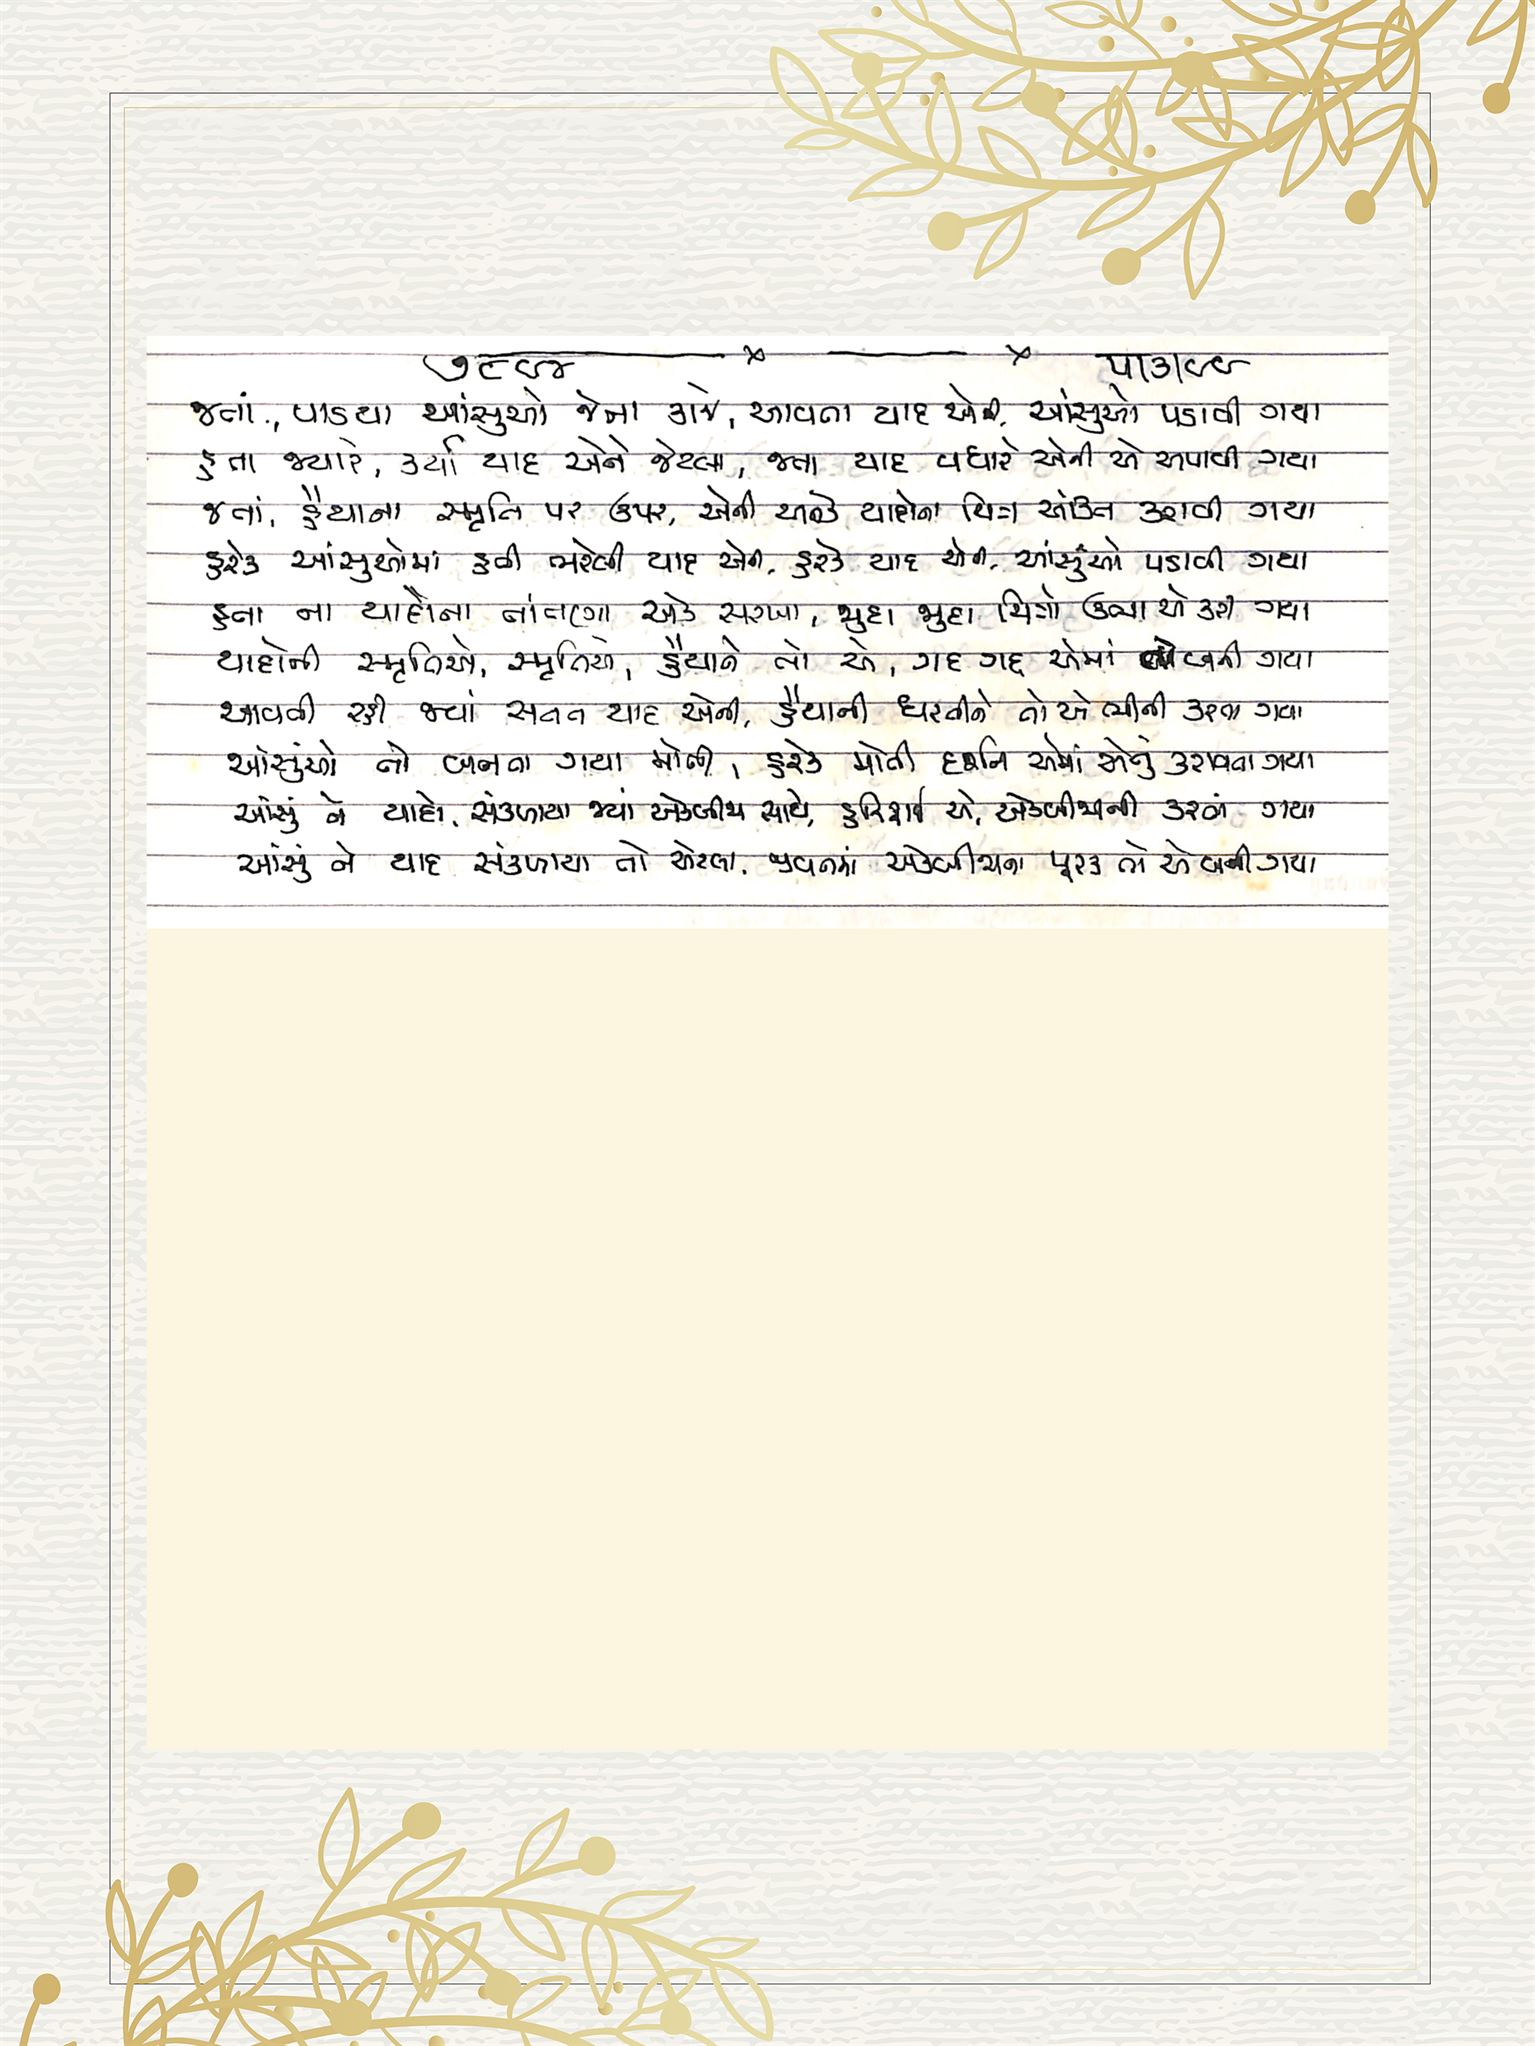 જતાં., પાડયા આંસુઓ જેના કાજે, આવતા યાદ એની, આંસુઓ પડાવી ગયા
હતા જ્યારે, કર્યા યાદ એને જેટલા, જતા યાદ વધારે એની એ અપાવી ગયા
જતાં, હૈયાના સ્મૃતિ પર ઉપર, એની યાદોના ચિત્ર અંકિત કરાવી ગયા
હરેક આંસુઓમાં હતી ભરેલી યાદ એની, હરેક યાદ એની, આંસુંઓ પડાવી ગયા
હતા ના યાદોના તાંતણા એક સરખા, જુદા જુદા ચિત્રો ઉભા એ કરી ગયા
યાદોની સ્મૃતિએ, સ્મૃતિએ, હૈયાને તો એ, ગદ ગદ્ એમાં બની ગયા
આવતી રહી જ્યાં સતત યાદ એની, હૈયાની ધરતીને તો એ ભીની કરતા ગયા
આંસુંઓ તો બનતા ગયા મોતી, હરેક મોતી દર્શન એમાં એનું કરાવતા ગયા
આંસું ને યાદો, સંકળાયા જ્યાં એકબીજા સાથે, એ, એકબીજાની કરતાં ગયા
આંસું ને યાદ સંકળાયા તો એટલા, જીવનમાં એકબીજાના પૂરક તો એ બની ગયા